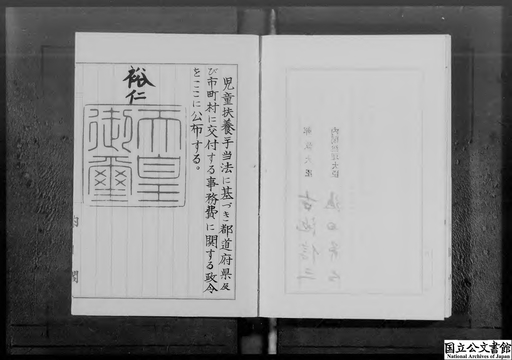 児童扶養手当法に基づき都道府県及
び市町村に交付する事務費に関する政令
をここに公布する。
裕仁
天皇
御璽
内閣
国立公文書館
National Archives of Japan